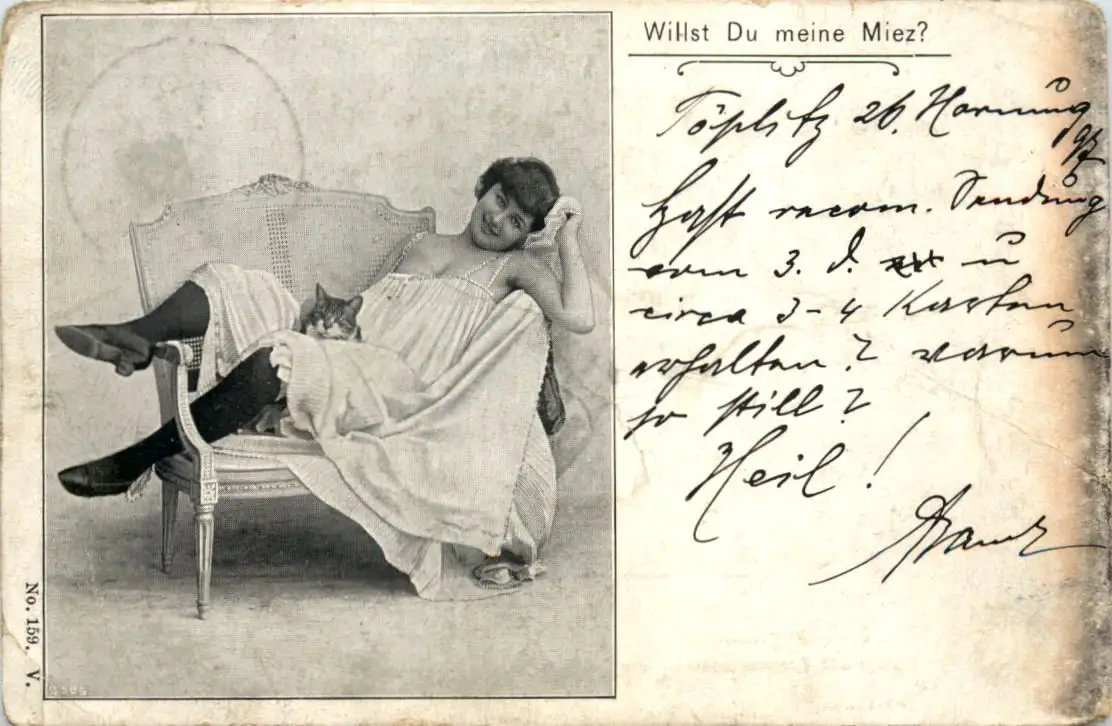 Willst Du meine Miez?
Töplitz 26. Hornung
97
Hast recom. Sendung
vom 3. d. u
circa 3-4 Karten
erhalten? warum
so still?
Heil!
Franz
No. 159. V.